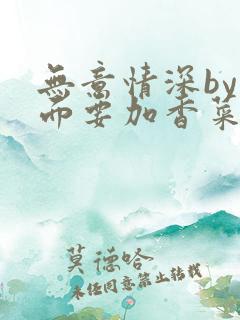 無意情深by
而要加香菜
莫德哈
未经同意禁止转载